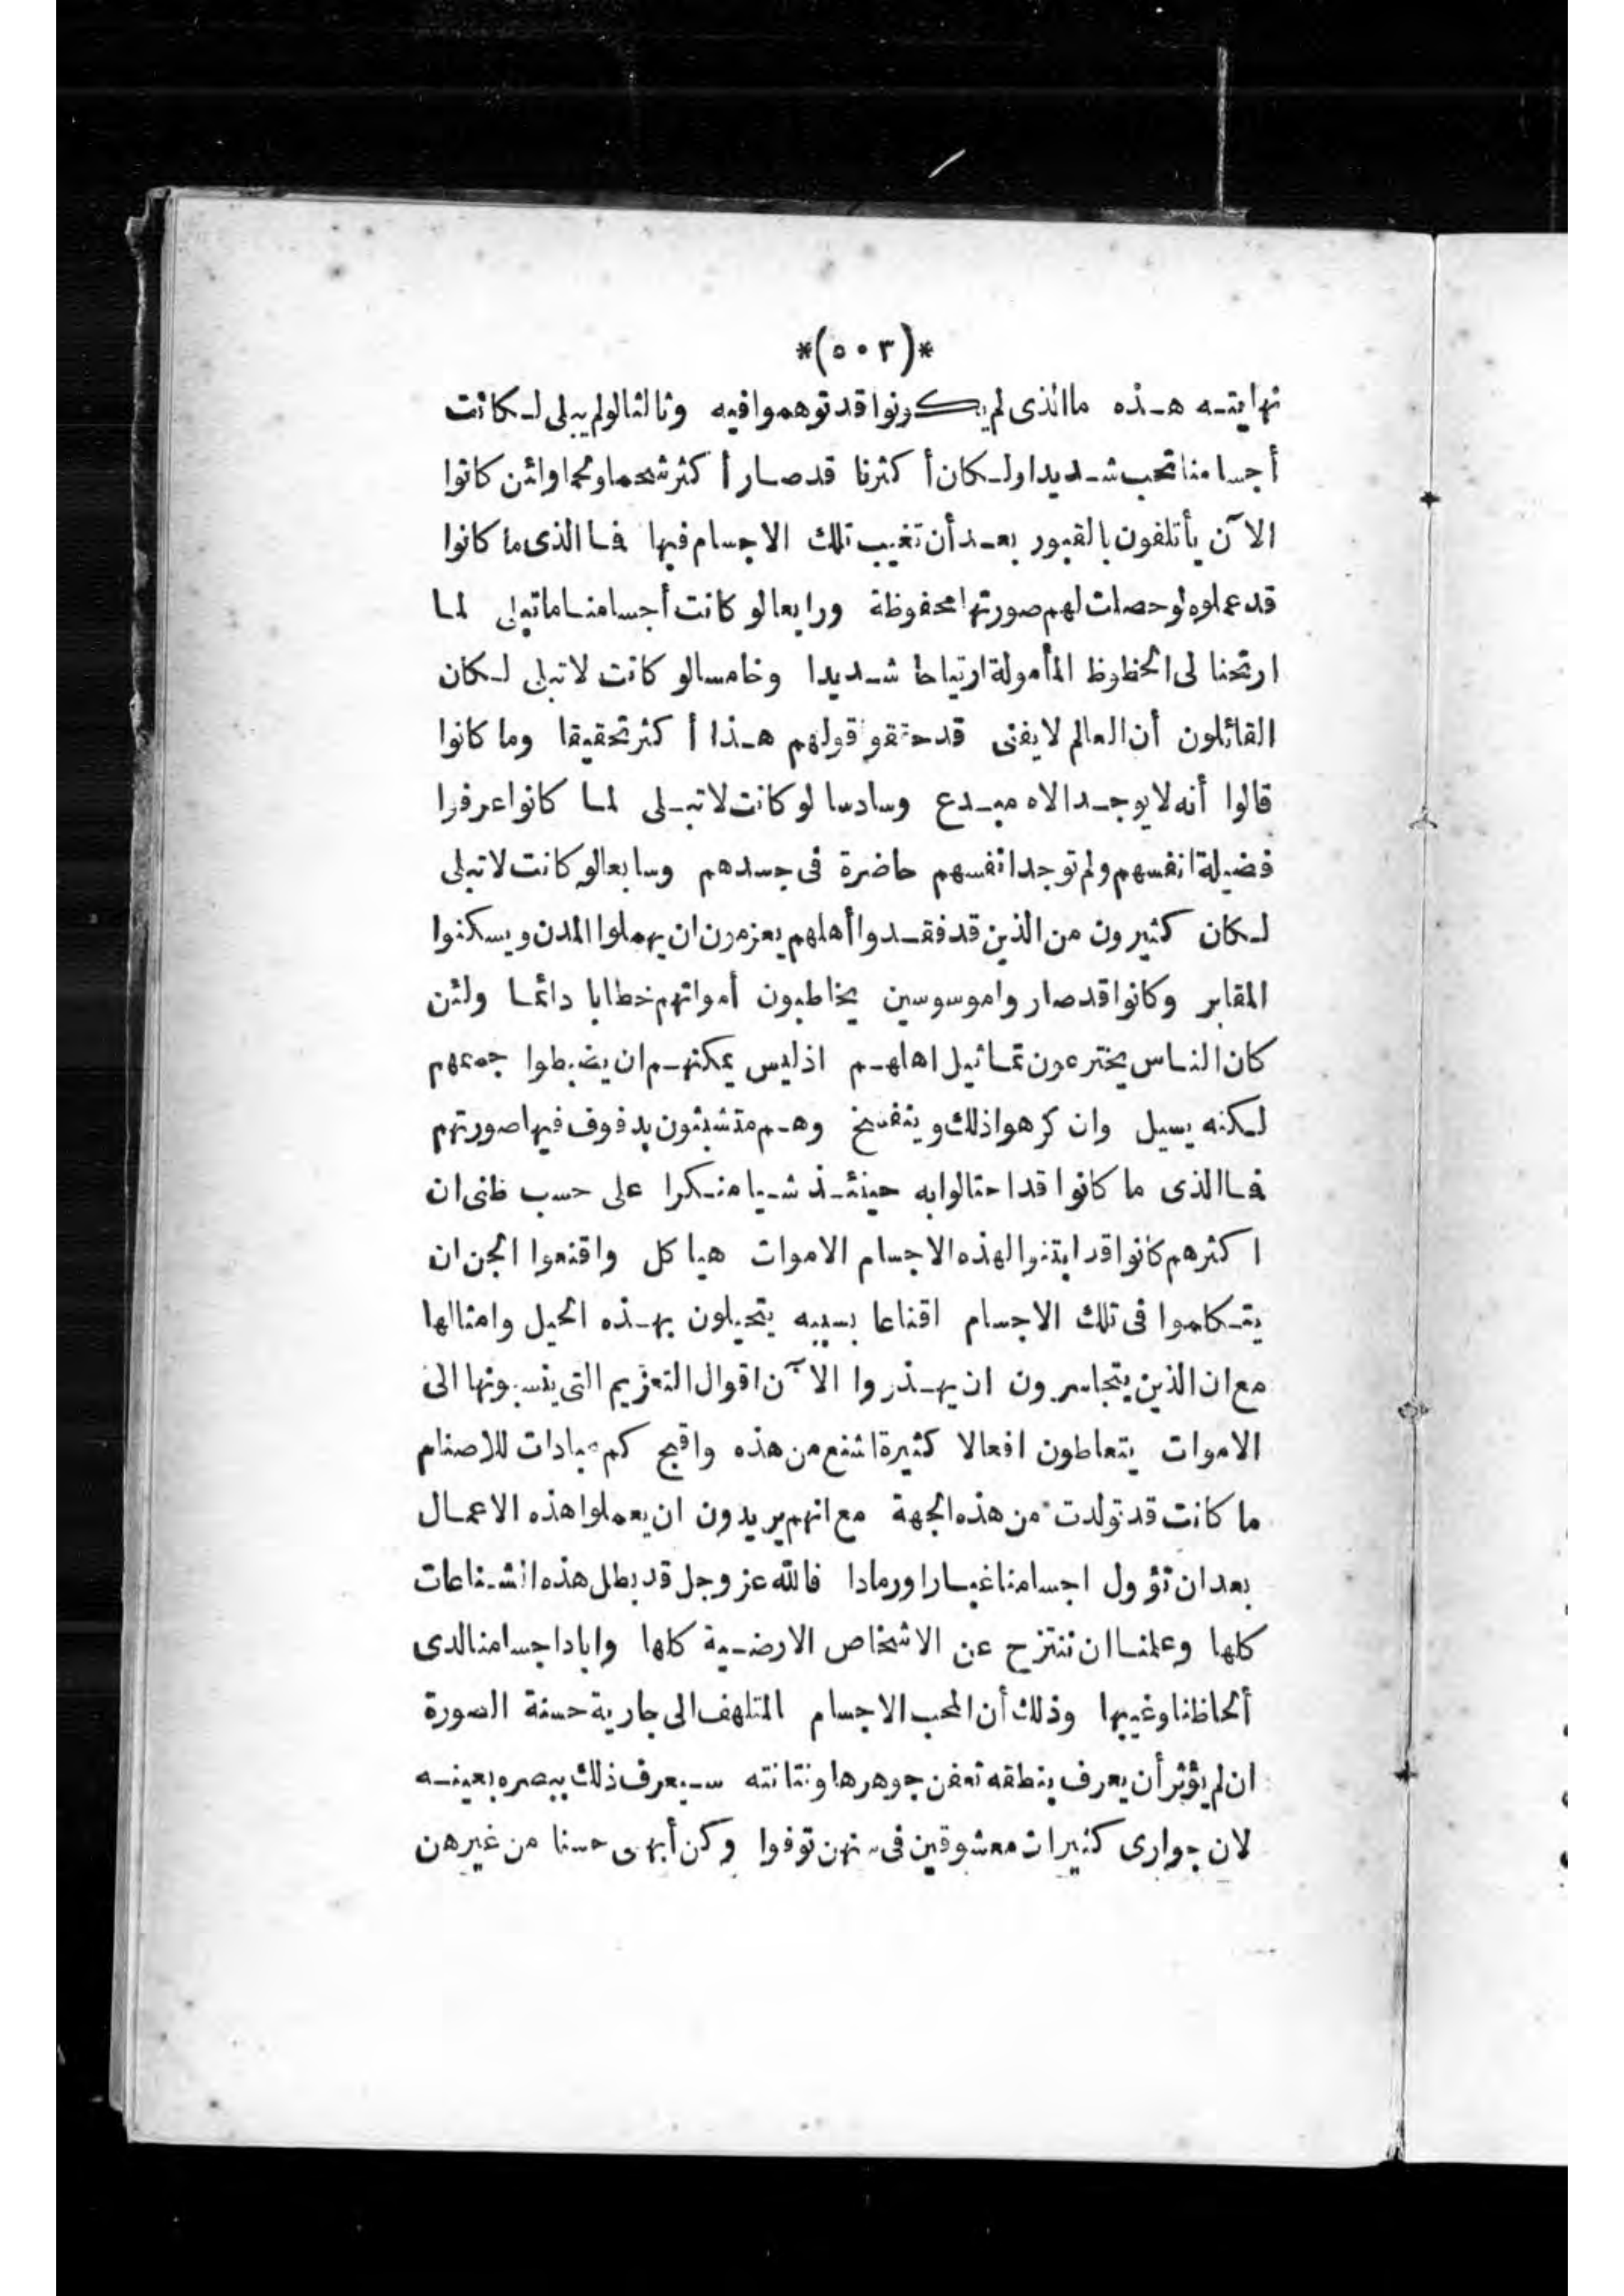 *(٥٠٣)*
نهايته هذه ما الذى لم يكونوا قد توهموا فيه وثالثا لو لم يبلى لكانت
أجسامنا تحب شديدا ولكان أكثرنا قد صار أكثر شحما ولحما ولئن كانوا
الآن يأتلفون بالقبور بعد أن تغيب تلك الاجسام فيها فما الذى ما كانوا
قد عملوه لو حصلت لهم صورتها محفوظة ورابعا لو كانت أجسامنا ما تبلى لما
ارتحنا لى الحظوظ المأمولة ارتياحا شديدا وخامسا لو كانت لا تبلى لكان
القائلون أن العالم لا يفنى قد حققو قولهم هذا أكثر تحقيقا وما كانوا
قالوا أنه لا يوجد الاه مبدع وسادسا لو كانت لا تبلى لما كانوا عرفوا
فضيلة انفسهم ولم توجد انفسهم حاضرة فى جسدهم وسابعا لو كانت لا تبلى
لكان كثيرون من الذين قد فقدوا أهلهم يعزمون ان يهملوا المدن ويسكنوا
المقابر وكانوا قد صاروا موسوسين يخاطبون أمواتهم خطابا دائما ولئن
كان الناس يخترعون تماثيل اهلهم اذ ليس يمكنهم ان يضبطوا جمعهم
لكنه يسيل وان كرهوا ذلك ويتفسخ وهم متشبثون بدفوف فيها صورتهم
فما الذى ما كانوا قد احتالوا به حينئذ شيا منكرا على حسب ظنى ان
اكثرهم كانوا قد ابتنوا لهذه الاجسام الاموات هيا كل واقنعوا الجن ان
يتكلموا فى تلك الاجسام اقناعا بسببه يتحيلون بهذه الحيل وامثالها
مع ان الذين يتجاسرون ان يهذروا الآن اقوال التعزيم التى ينسبونها الى
الاموات يتعاطون افعالا كثيرة اشنع من هذه واقبح كم عبادات للاصنام
ما كانت قد تولدت من هذه الجهة مع انهم يريدون ان يعملوا هذه الاعمال
بعد ان تؤول اجسامنا غبارا ورمادا فالله عز وجل قد بطل هذه الشناعات
كلها وعلمنا ان ننتزح عن الاشخاص الارضية كلها واباد اجسامنا لدى
ألحاظنا وغيبها وذلك أن المحب الاجسام المتلهف الى جارية حسنة الصورة
ان لم يؤثر أن يعرف بنطقه تعفن جوهرها ونتانته سيعرف ذلك ببصره بعينه
لان جوارى كثيرات معشوقين فى سنهن توفوا وكن أبهى حسنا من غيرهن